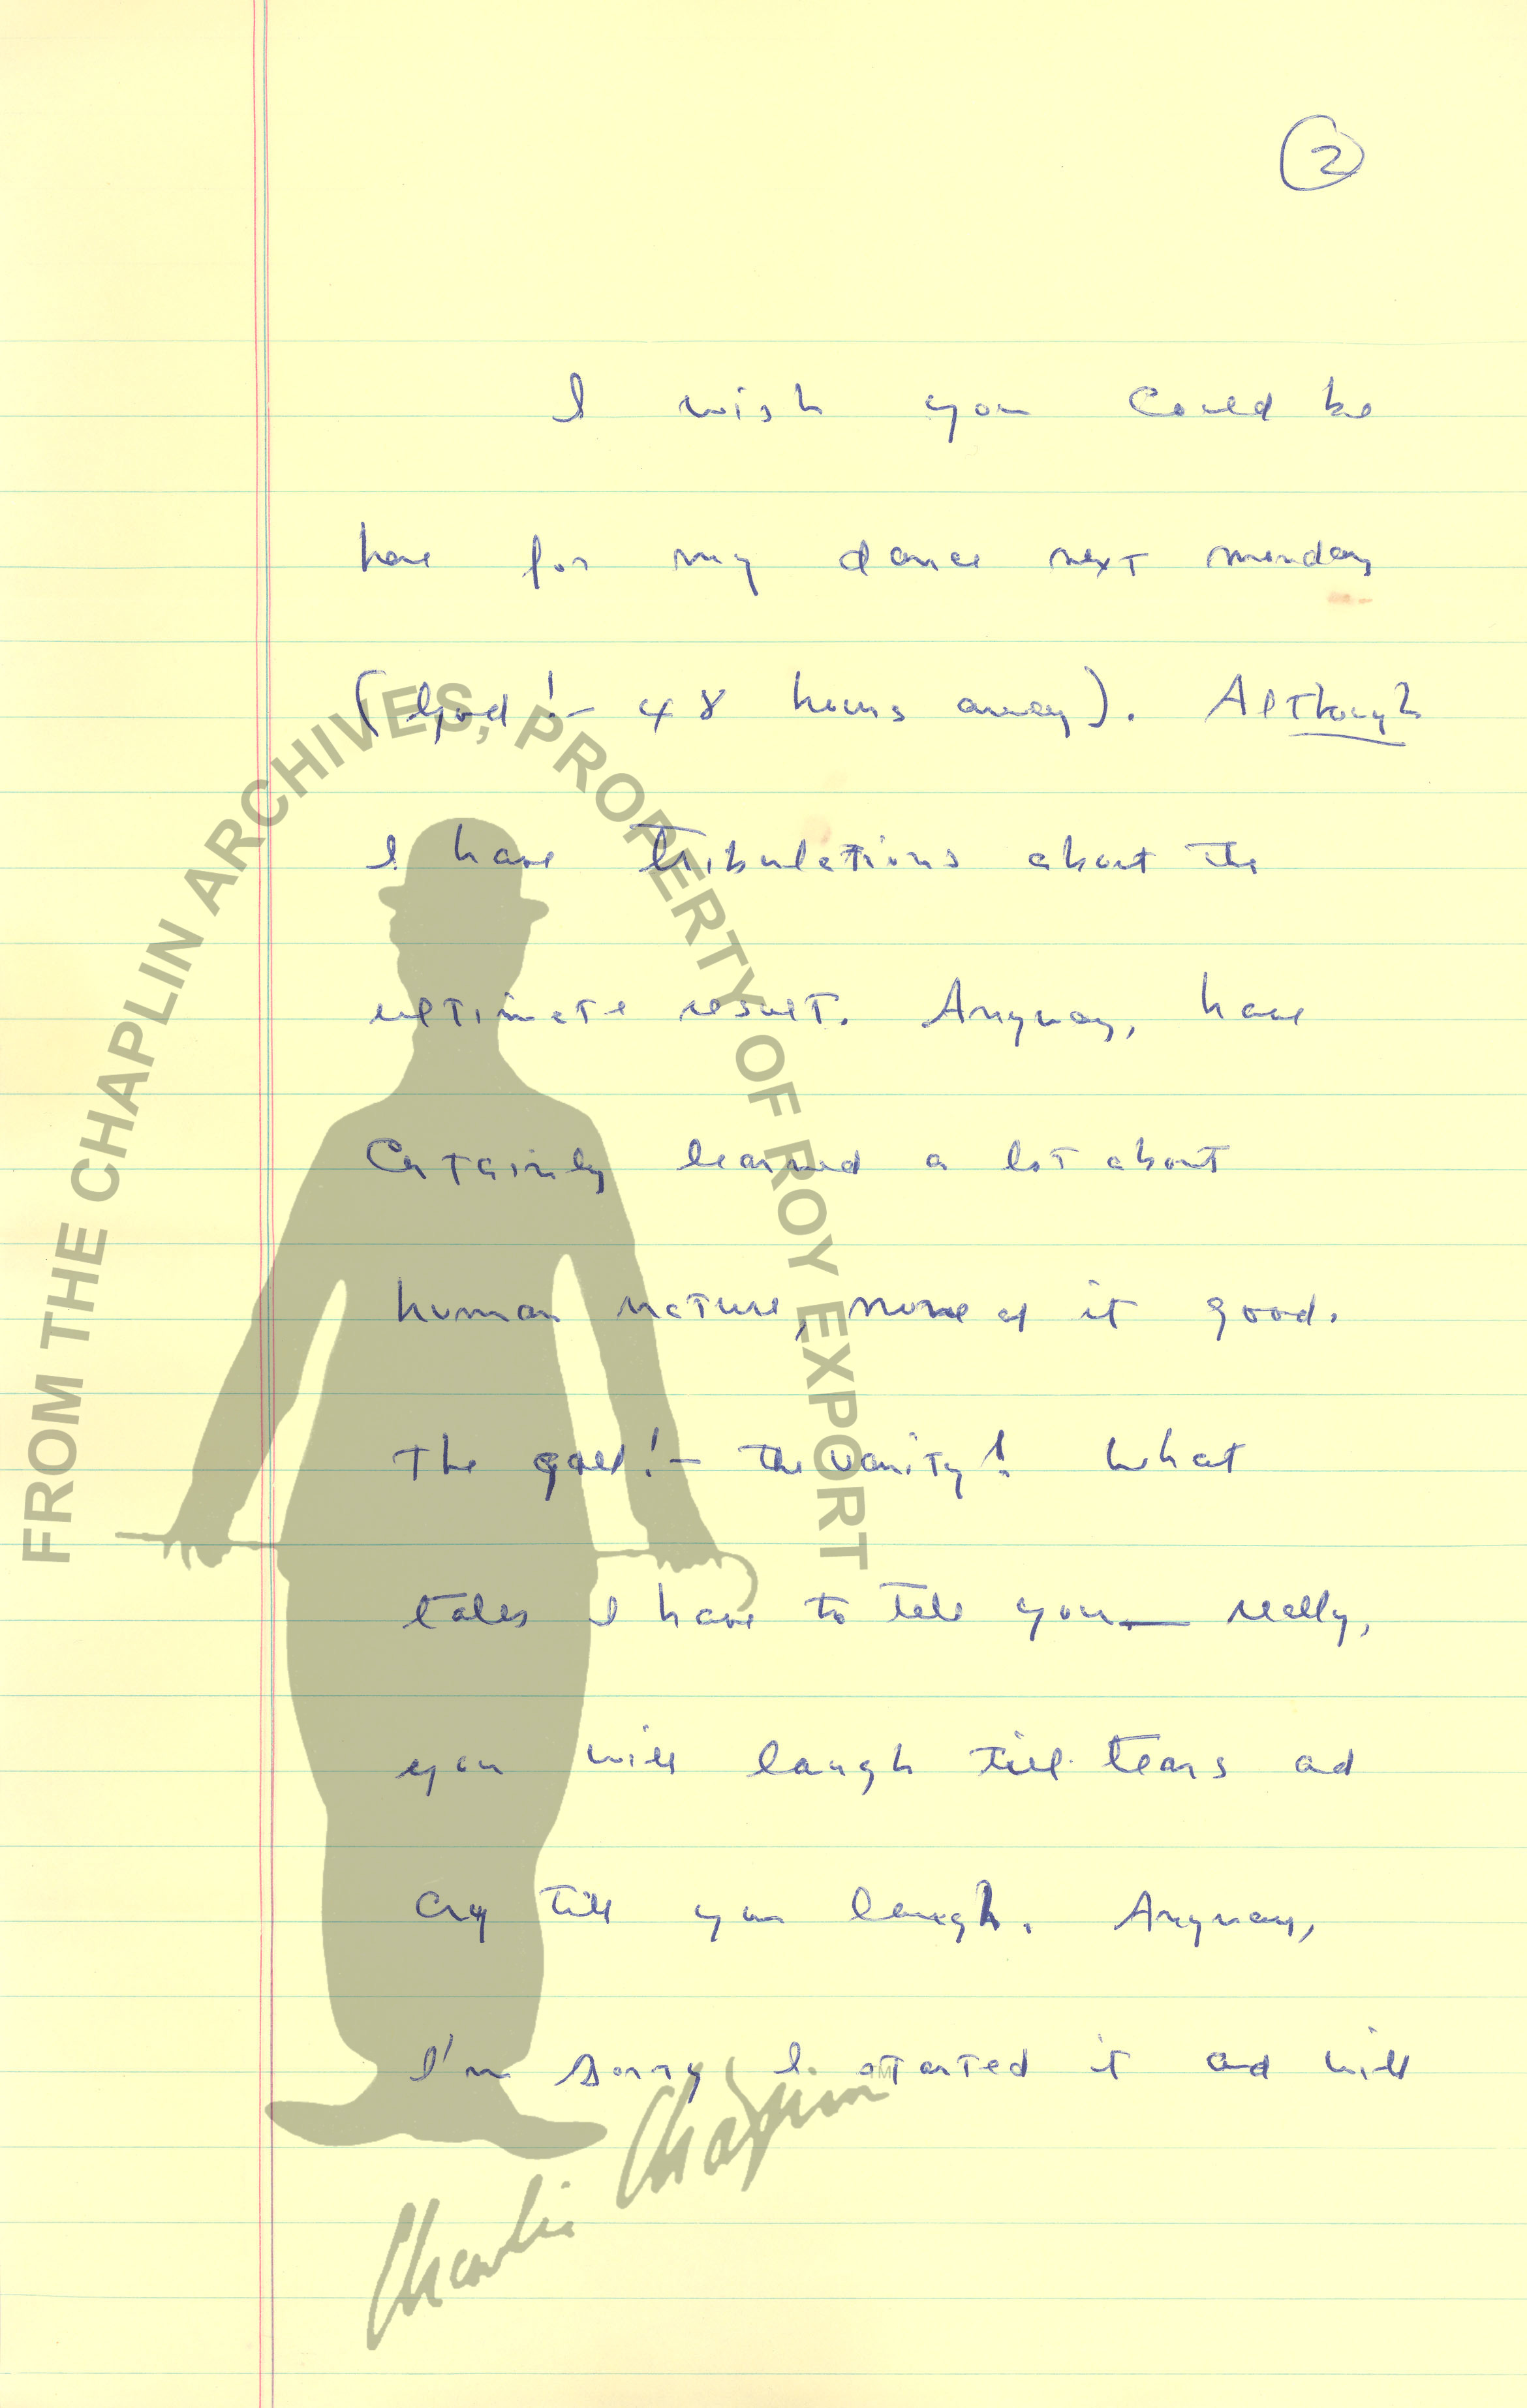 2
I wish you could be
here for my dance next monday
(God!— 48 hours away). Although
I have tribulations about the
ultimate result. Anyway, have
Certainly learned a lot about
human nature, none of it good.
The gall!— the vanity! What
tales I have to tell you — really,
you will laugh till tears and
cry till you laugh. Anyway,
I'm sorry I started it and will
FROM THE CHAPLIN ARCHIVES, PROPERTY OF ROY EXPORT
Charlie Chaplin
TM